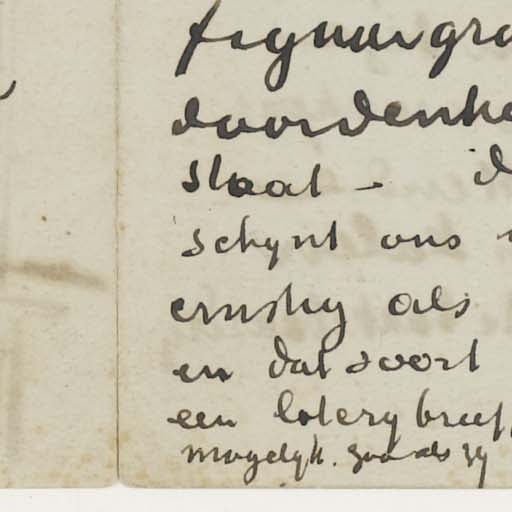 fignurgra
doordenke
staat — d
schynt ons
ernstig als
en dat soort
een lotery brief
mogelyk. zooals zy